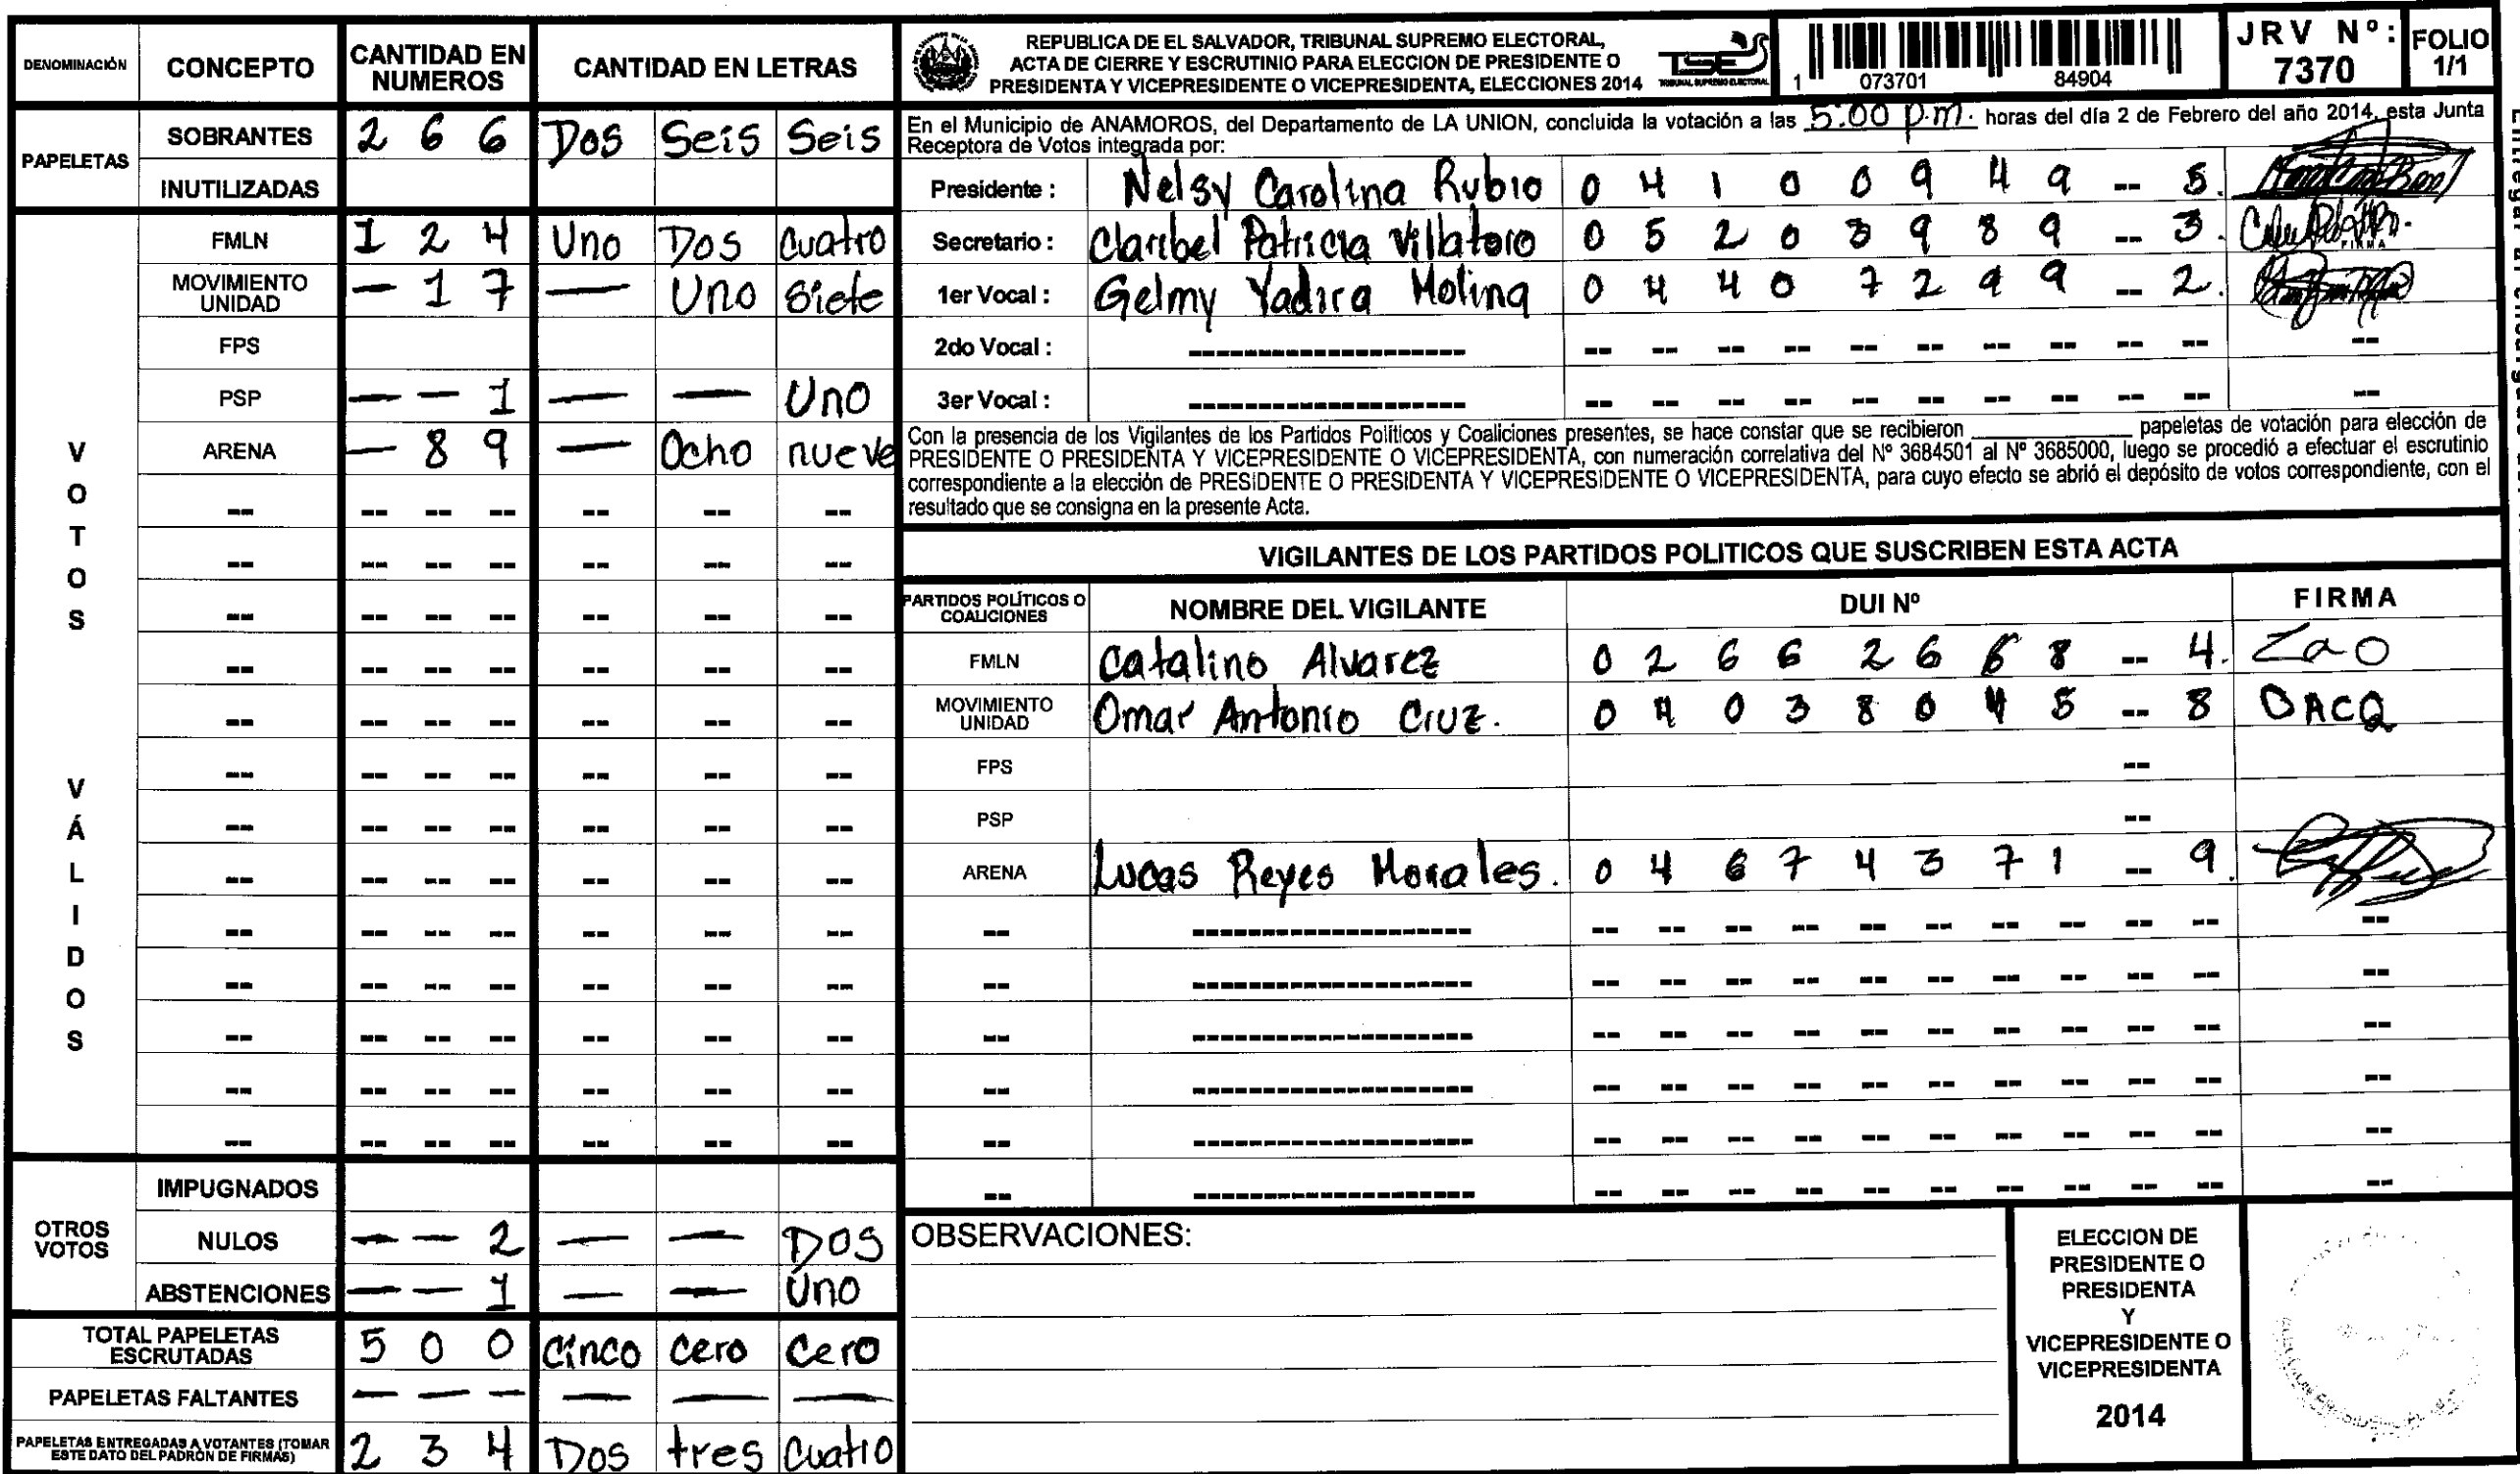 DENOMINACIÓN CONCEPTO CANTIDAD EN NUMEROS CANTIDAD EN LETRAS
PAPELETAS
SOBRANTES 2 6 6 Dos Seis Seis
INUTILIZADAS
VOTOS VÁLIDOS
FMLN 1 2 4 Uno Dos Cuatro
MOVIMIENTO UNIDAD — 1 7 — Uno Siete
FPS
PSP — — 1 — — Uno
ARENA — 8 9 — Ocho nueve
-- -- -- -- -- -- --
-- -- -- -- -- -- --
-- -- -- -- -- -- --
-- -- -- -- -- -- --
-- -- -- -- -- -- --
-- -- -- -- -- -- --
-- -- -- -- -- -- --
-- -- -- -- -- -- --
-- -- -- -- -- -- --
-- -- -- -- -- -- --
-- -- -- -- -- -- --
-- -- -- -- -- -- --
-- -- -- -- -- -- --
OTROS VOTOS
IMPUGNADOS
NULOS — — 2 — — Dos
ABSTENCIONES — — 1 — — Uno
TOTAL PAPELETAS ESCRUTADAS 5 0 0 Cinco Cero Cero
PAPELETAS FALTANTES — — — — — —
PAPELETAS ENTREGADAS A VOTANTES (TOMAR ESTE DATO DEL PADRÓN DE FIRMAS) 2 3 4 Dos tres Cuatro
REPUBLICA DE EL SALVADOR, TRIBUNAL SUPREMO ELECTORAL,
ACTA DE CIERRE Y ESCRUTINIO PARA ELECCION DE PRESIDENTE O
PRESIDENTA Y VICEPRESIDENTE O VICEPRESIDENTA, ELECCIONES 2014
TSE
TRIBUNAL SUPREMO ELECTORAL
1 073701 84904
JRV Nº: 7370
FOLIO 1/1
En el Municipio de ANAMOROS, del Departamento de LA UNION, concluida la votación a las 5:00 p.m. horas del día 2 de Febrero del año 2014, esta Junta
Receptora de Votos integrada por:
Presidente : Nelsy Carolina Rubio 0 4 1 0 0 9 4 9 -- 5.
Secretario : Claribel Patricia Villatoro 0 5 2 0 3 9 8 9 -- 3. FIRMA
1er Vocal : Gelmy Yadira Molina 0 4 4 0 7 2 9 9 -- 2.
2do Vocal : -------------------- -- -- -- -- -- -- -- -- -- -- --
3er Vocal : -------------------- -- -- -- -- -- -- -- -- -- -- --
Con la presencia de los Vigilantes de los Partidos Políticos y Coaliciones presentes, se hace constar que se recibieron ____________ papeletas de votación para elección de
PRESIDENTE O PRESIDENTA Y VICEPRESIDENTE O VICEPRESIDENTA, con numeración correlativa del Nº 3684501 al Nº 3685000, luego se procedió a efectuar el escrutinio
correspondiente a la elección de PRESIDENTE O PRESIDENTA Y VICEPRESIDENTE O VICEPRESIDENTA, para cuyo efecto se abrió el depósito de votos correspondiente, con el
resultado que se consigna en la presente Acta.
VIGILANTES DE LOS PARTIDOS POLITICOS QUE SUSCRIBEN ESTA ACTA
PARTIDOS POLÍTICOS O COALICIONES NOMBRE DEL VIGILANTE DUI Nº FIRMA
FMLN Catalino Alvarez 0 2 6 6 2 6 6 8 -- 4.
MOVIMIENTO UNIDAD Omar Antonio Cruz. 0 4 0 3 8 0 4 5 -- 8 OACQ
FPS --
PSP --
ARENA Lucas Reyes Morales. 0 4 6 7 4 3 7 1 -- 9.
-- -------------------- -- -- -- -- -- -- -- -- -- -- --
-- -------------------- -- -- -- -- -- -- -- -- -- -- --
-- -------------------- -- -- -- -- -- -- -- -- -- -- --
-- -------------------- -- -- -- -- -- -- -- -- -- -- --
-- -------------------- -- -- -- -- -- -- -- -- -- -- --
-- -------------------- -- -- -- -- -- -- -- -- -- -- --
OBSERVACIONES:
ELECCION DE
PRESIDENTE O
PRESIDENTA
Y
VICEPRESIDENTE O
VICEPRESIDENTA
2014